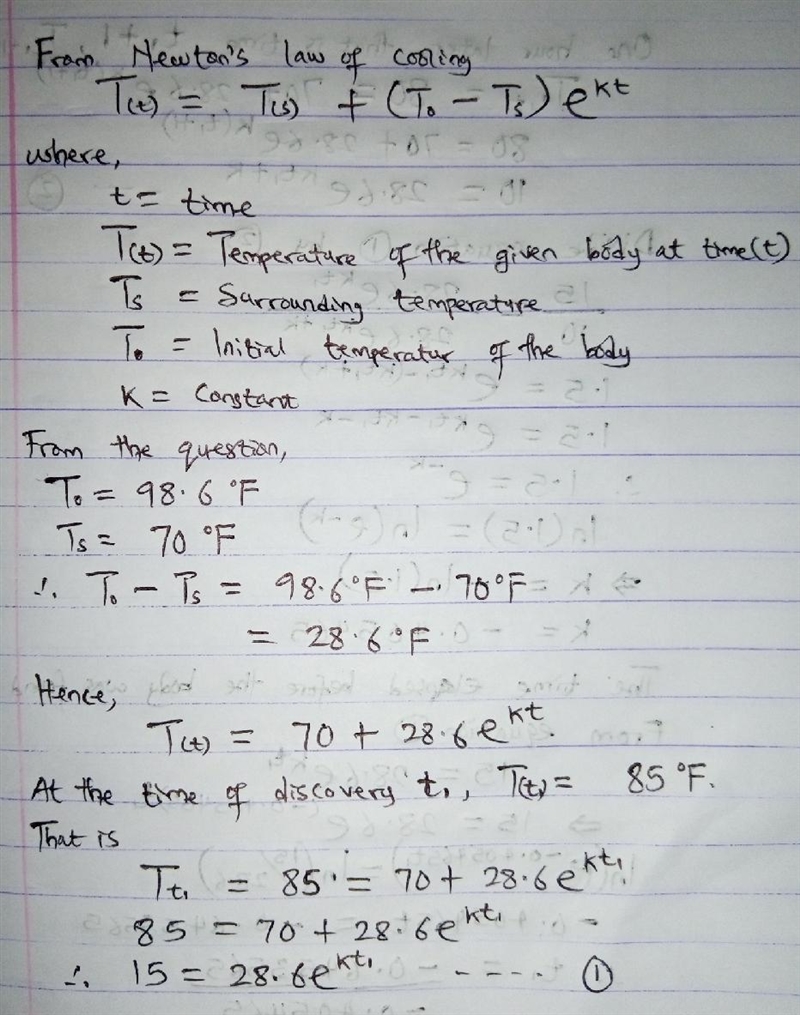 From Newton's law of cooling
T(t) = T(s) + (T₀ - Ts) e^kt
where,
t = time
T(t) = Temperature of the given body at time(t)
Ts = Surrounding temperature
T₀ = Initial temperatur of the body
K = Constant
From the question,
T₀ = 98.6 °F
Ts = 70 °F
∴ T₀ - Ts = 98.6°F - 70°F
= 28.6°F
Hence,
T(t) = 70 + 28.6e^kt.
At the time of discovery t₁, T(t₁) = 85 °F.
That is
Tt₁ = 85 = 70 + 28.6e^kt₁
85 = 70 + 28.6e^kt₁
∴ 15 = 28.6e^kt₁ ----- ①